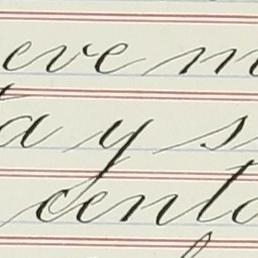 eve m
ta y s
cento